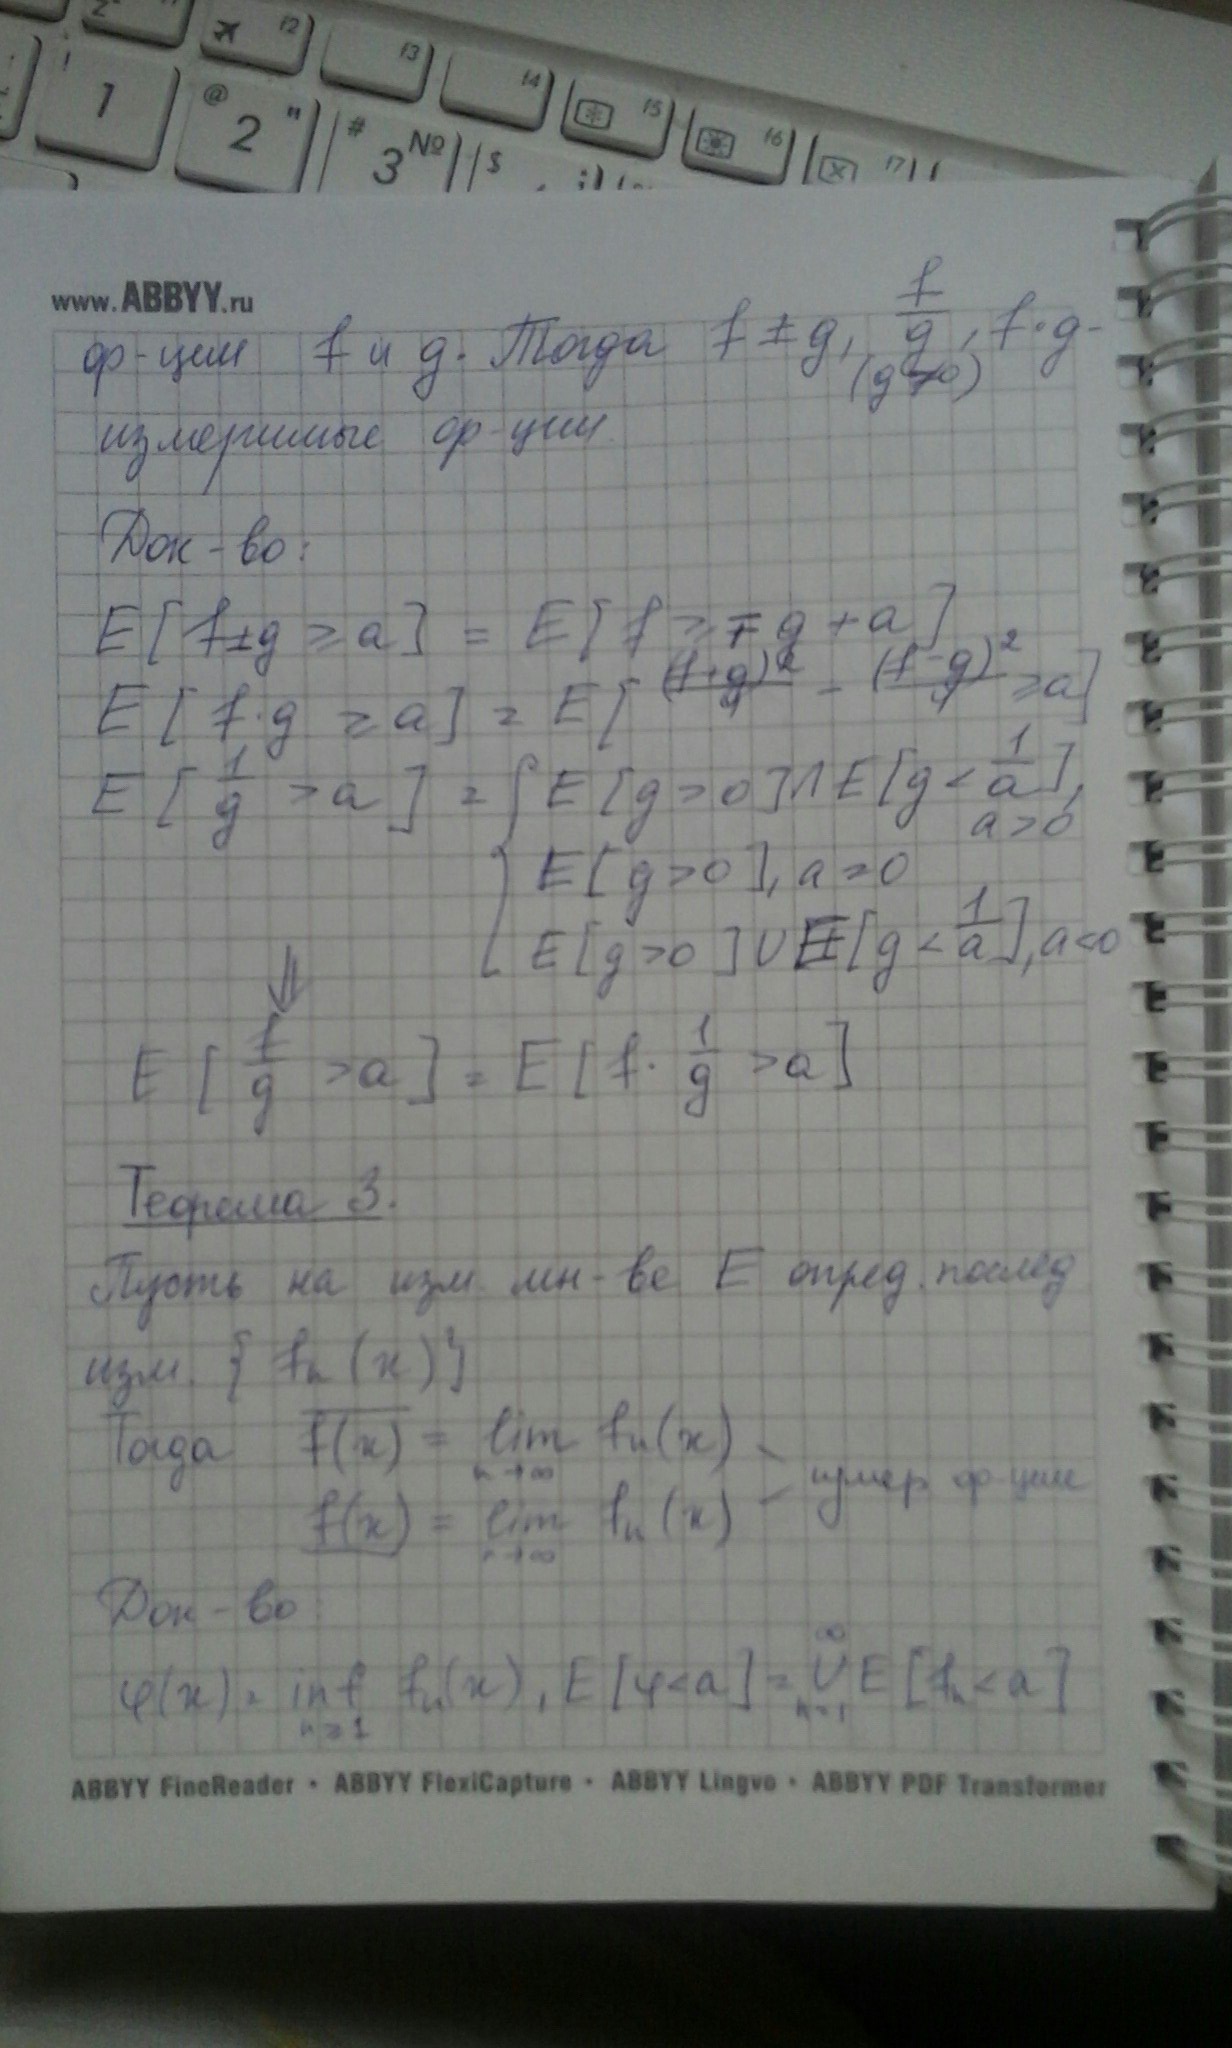 1 @ 2 " # 3 № $
12 13 14 15 16 17
www.ABBYY.ru
ф-ции f и g. Тогда f ± g, f/g (g≠0), f·g -
измеримые ф-ции.
Док-во:
E[f±g ≥ a] = E[f ≥ ∓g + a]
E[f·g ≥ a] = E[(f+g)²/4 - (f-g)²/4 ≥ a]
E[1/g > a] = { E[g>0] ∩ E[g < 1/a], a>0
E[g>0], a=0
E[g>0] ∪ E[g < 1/a], a<0
⇓
E[f/g > a] = E[f · 1/g > a]
Теорема 3.
Пусть на изм. мн-ве E опред. послед
изм. {fn(x)}
Тогда f̅(̅x̅)̅ = lim n→∞ fn(x)
f(x) = lim n→∞ fn(x) - измер ф-ции
Док-во:
φ(x) = inf n≥1 fn(x), E[φ<a] = ∞ ∪ n=1 E[fn<a]
ABBYY FineReader • ABBYY FlexiCapture • ABBYY Lingvo • ABBYY PDF Transformer